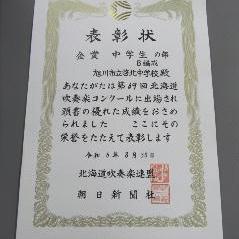 表彰状
金賞 中学生の部
B編成
旭川市立啓北中学校殿
あなたがたは第69回北海道
吹奏楽コンクールに出場され
頭書の優れた成績をおさめ
られました ここにその
栄誉をたたえて表彰します
令和6年8月
北海道吹奏楽連盟
朝日新聞社